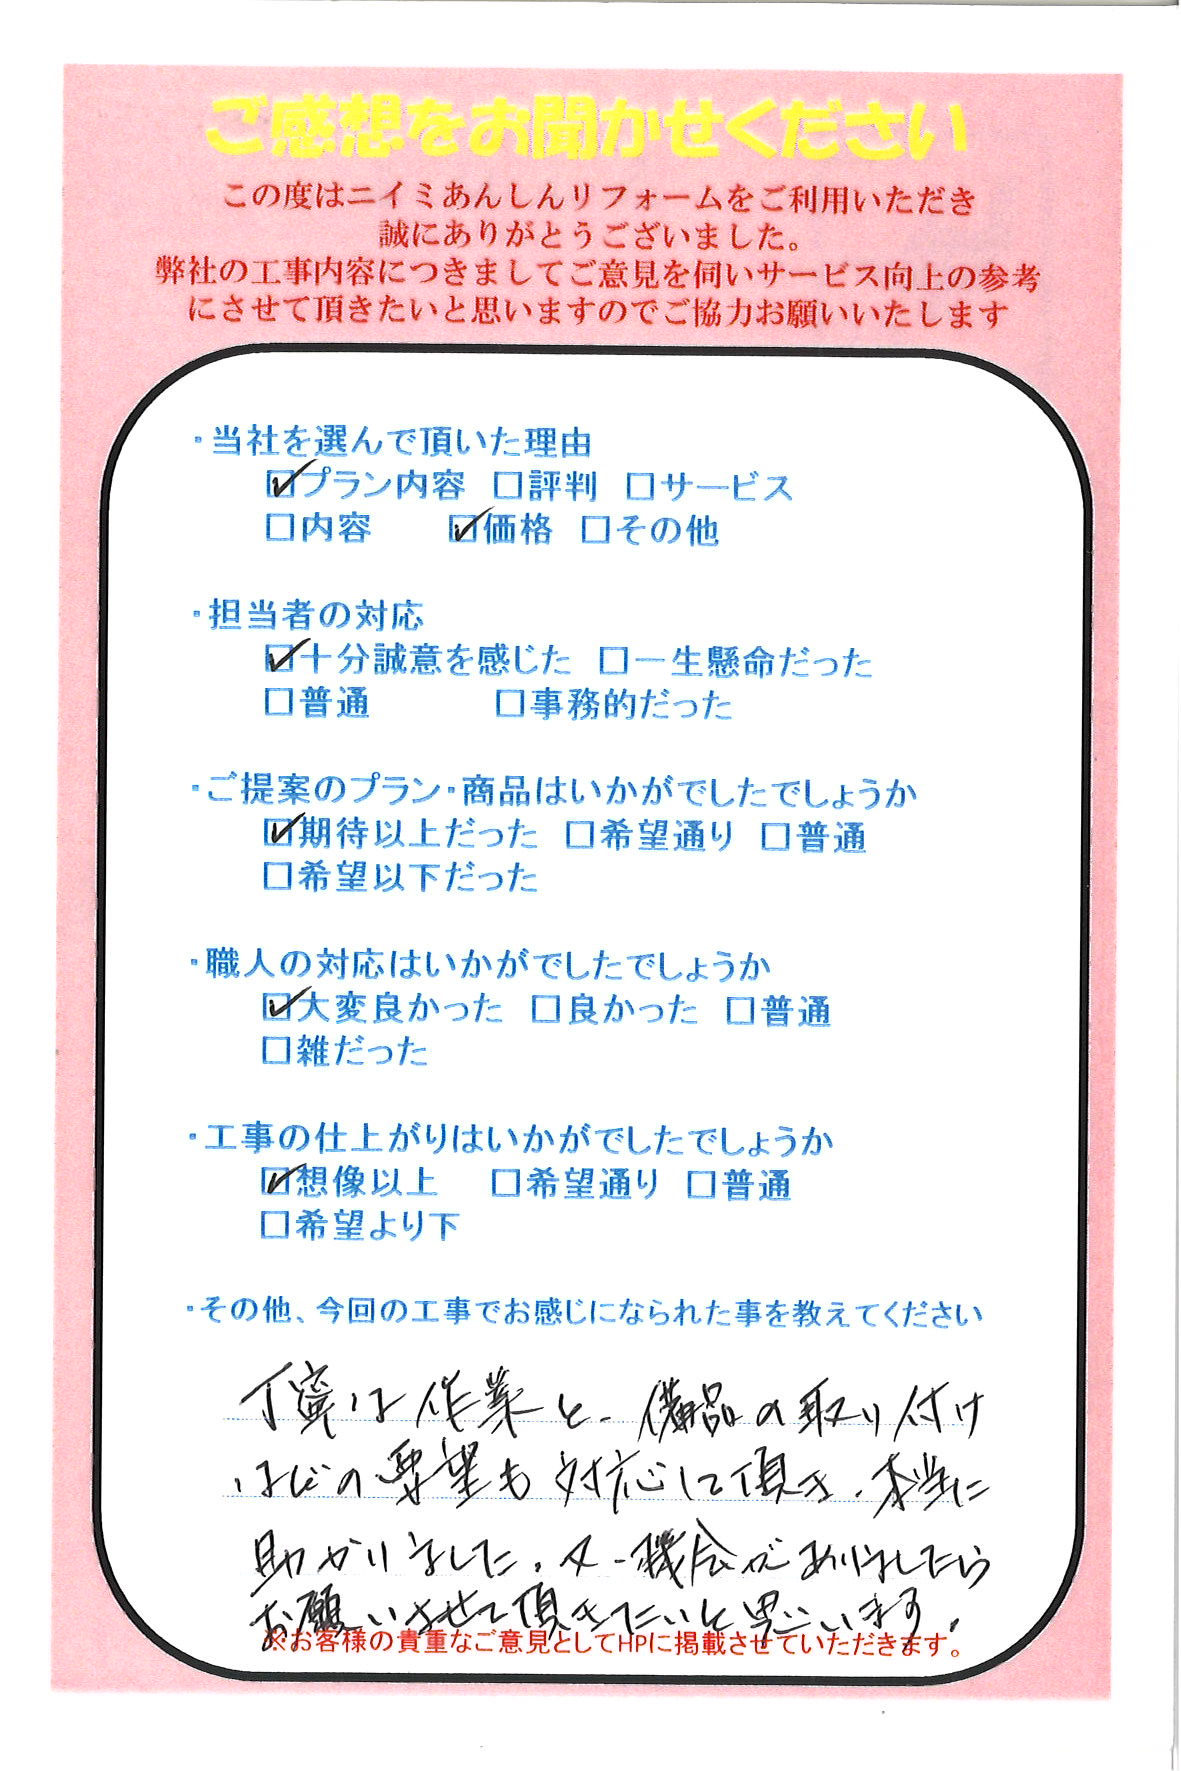 ご感想をお聞かせください
この度はニイミあんしんリフォームをご利用いただき
誠にありがとうございました。
弊社の工事内容につきましてご意見を伺いサービス向上の参考
にさせて頂きたいと思いますのでご協力お願いいたします
・当社を選んで頂いた理由
☑プラン内容 □評判 □サービス
□内容 ☑価格 □その他
・担当者の対応
☑十分誠意を感じた □一生懸命だった
□普通 □事務的だった
・ご提案のプラン・商品はいかがでしたでしょうか
☑期待以上だった □希望通り □普通
□希望以下だった
・職人の対応はいかがでしたでしょうか
☑大変良かった □良かった □普通
□雑だった
・工事の仕上がりはいかがでしたでしょうか
☑想像以上 □希望通り □普通
□希望より下
・その他、今回の工事でお感じになられた事を教えてください
丁寧な作業と、備品の取り付け
などの要望も対応して頂き、本当に
助かりました。又、機会がありましたら
お願いさせて頂きたいと思います。
※お客様の貴重なご意見としてHPに掲載させていただきます。